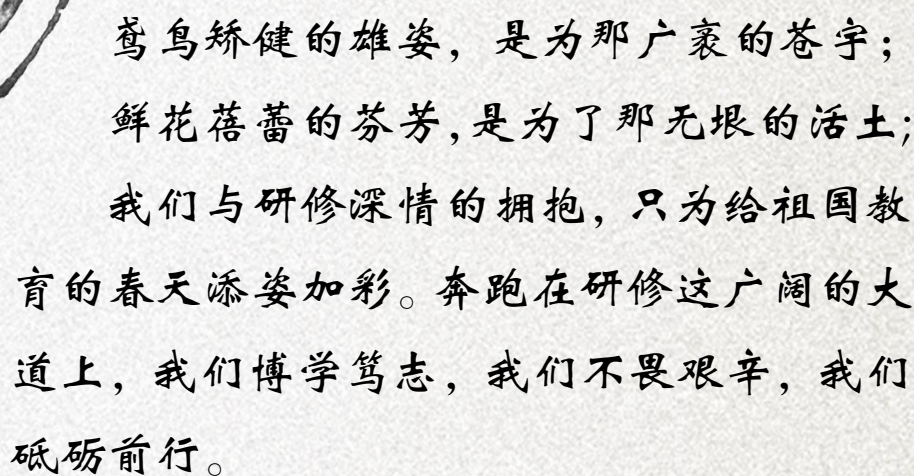 鸢鸟矫健的雄姿，是为那广袤的苍宇；
鲜花蓓蕾的芬芳,是为了那无垠的活土;
我们与研修深情的拥抱，只为给祖国教
育的春天添姿加彩。奔跑在研修这广阔的大
道上，我们博学笃志，我们不畏艰辛，我们
砥砺前行。